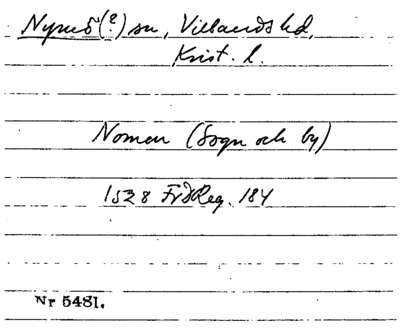 Nymö(?) sn, Villands hd,
Krist. l.
Nomen (Sogn och by)
1528 FrdReg. 184
Nr 5481.